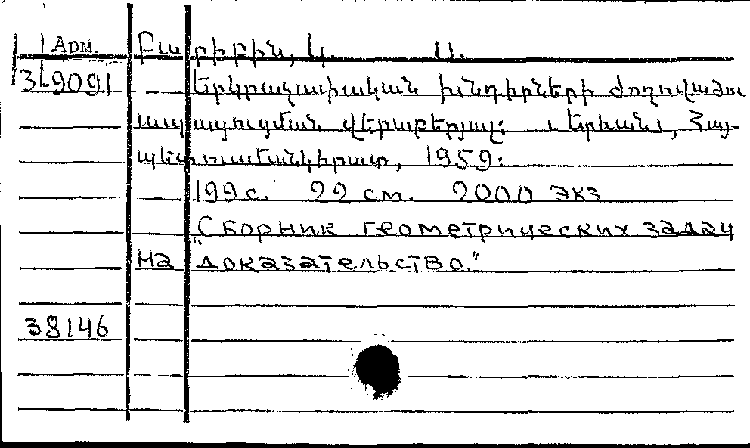 Арм. Բարիբին, Կ. Ս.
3-9091 Երկրաչափական խնդիրների ժողովածու
ապացուցման վերաբերյալ: [Երևան], Հայ-
պետուսմանկհրատ, 1959:
199 с. 22 см. 2000 экз
"Сборник геометрических задач
на доказательство."
38146